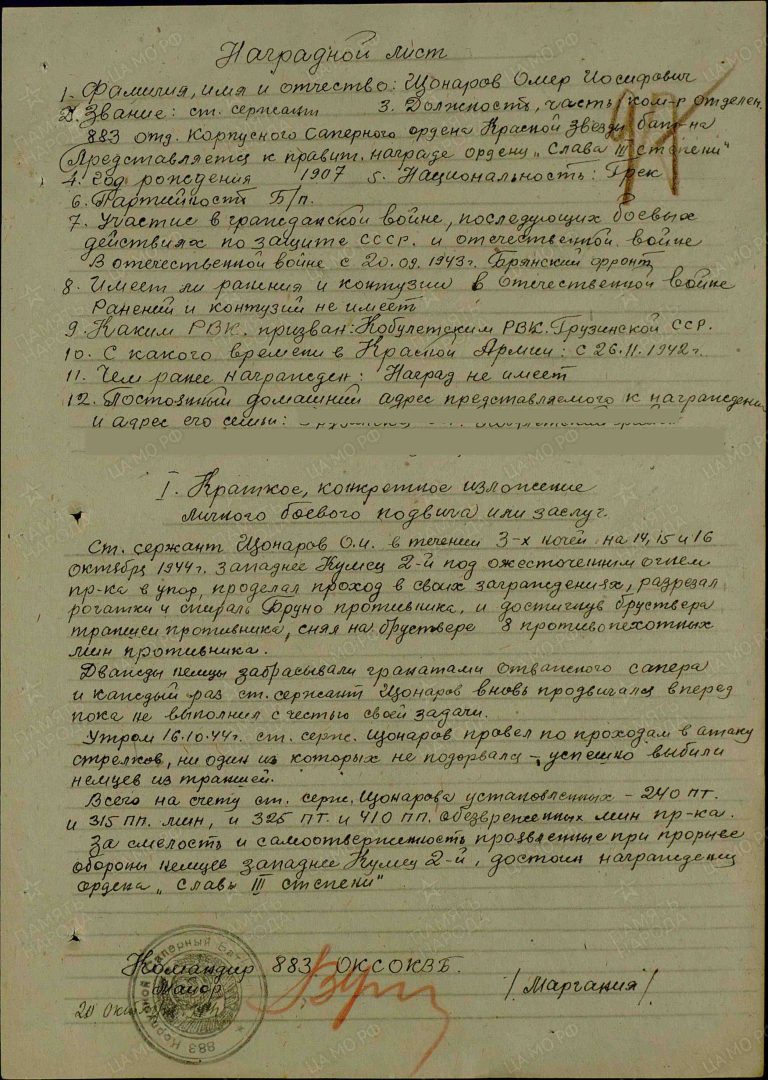 Наградной лист
1. Фамилия, имя и отчество: Цонаров Омер Иосифович
2. Звание: ст. сержант 3. Должность, часть ком-р отделен.
883 отд. Корпусного Саперного ордена Красной Звезды бат-на
Представляется к правит. награде ордену „Слава III степени"
4. Год рождения 1907 5. Национальность: Грек
6. Партийность Б/п.
7. Участие в гражданской войне, последующих боевых
действиях по защите СССР. и отечественной войне
В отечественной войне с 20.09.1943г. Брянский фронт
8. Имеет ли ранения и контузии в Отечественной войне
Ранений и контузий не имеет
9. Каким РВК. призван: Кобулетским РВК. Грузинской ССР.
10. С какого времени в Красной Армии: с 26.11.1942г.
11. Чем ранее награжден: Наград не имеет
12. Постоянный домашний адрес представляемого к награждению
и адрес его семьи:
I. Краткое, конкретное изложение
личного боевого подвига или заслуг.
Ст. сержант Цонаров О.И. в течении 3-х ночей на 14, 15 и 16
октября 1944г. западнее Кумец 2-й под ожесточенным огнем
пр-ка в упор, проделал проход в своих заграждениях, разрезал
рогатки и спираль Бруно противника, и достигнув бруствера
траншеи противника, снял на бруствере 8 противопехотных
мин противника.
Дважды немцы забрасывали гранатами отважного сапера
и каждый раз ст. сержант Цонаров вновь продвигался вперед
пока не выполнил с честью своей задачи.
Утром 16.10.44г. ст. серж. Цонаров провел по проходам в атаку
стрелков, ни один из которых не подорвался – успешно выбили
немцев из траншей.
Всего на счету ст. серж. Цонарова установленных – 240 ПТ.
и 315 ПП. мин, и 325 ПТ. и 410 ПП. обезвреженных мин пр-ка.
За смелость и самоотверженность проявленные при прорыве
обороны немцев западнее Кумец 2-й, достоин награждения
ордена „Славы III стспени"
Командир 883 ОКСОКЗБ.
Майор /Маргания/
20 Октября